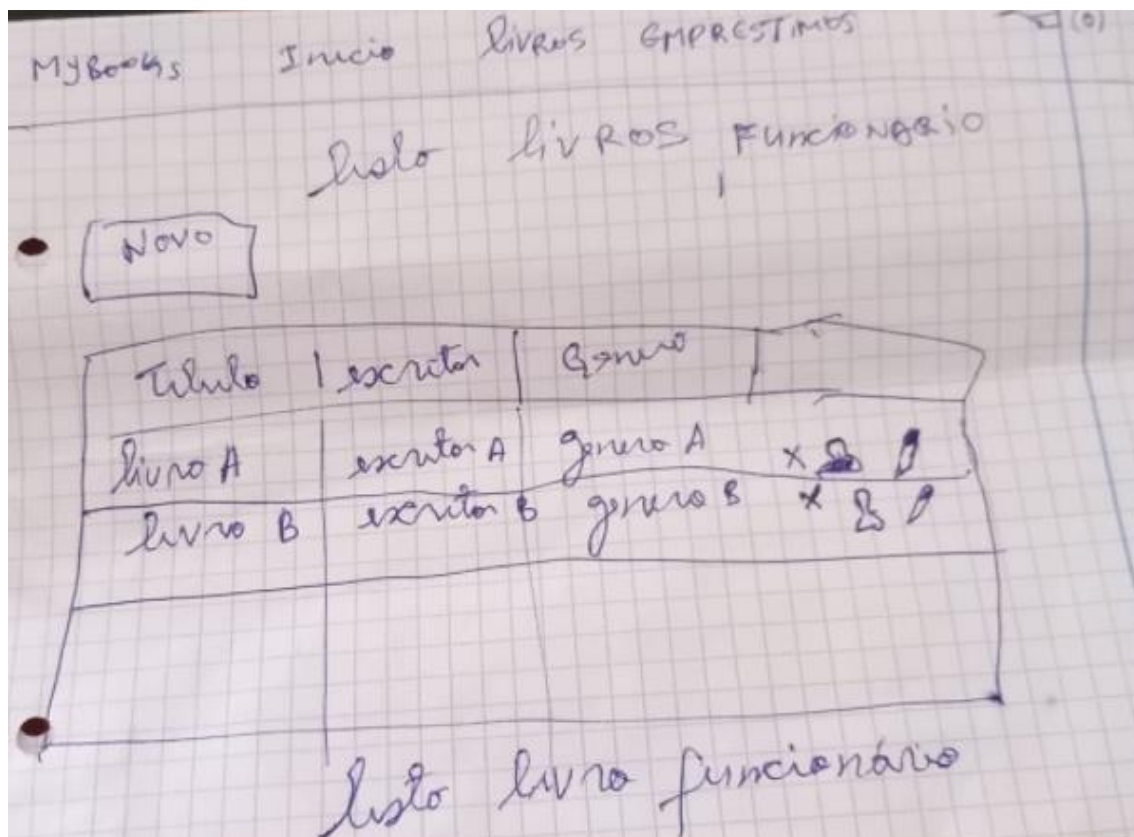 MyBooks Inicio livros EMPRESTIMOS (0)
lista livROS FUNCIONARIO
NOVO
Titulo escritor Genero
livro A escritor A genero A X
livro B escritor B genero B X
lista livro funcionário